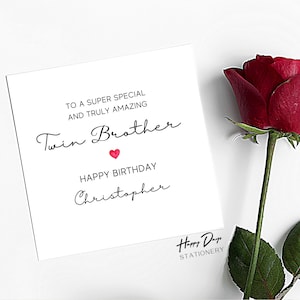 TO A SUPER SPECIAL
AND TRULY AMAZING
Twin Brother
HAPPY BIRTHDAY
Christopher
Happy Days
STATIONERY